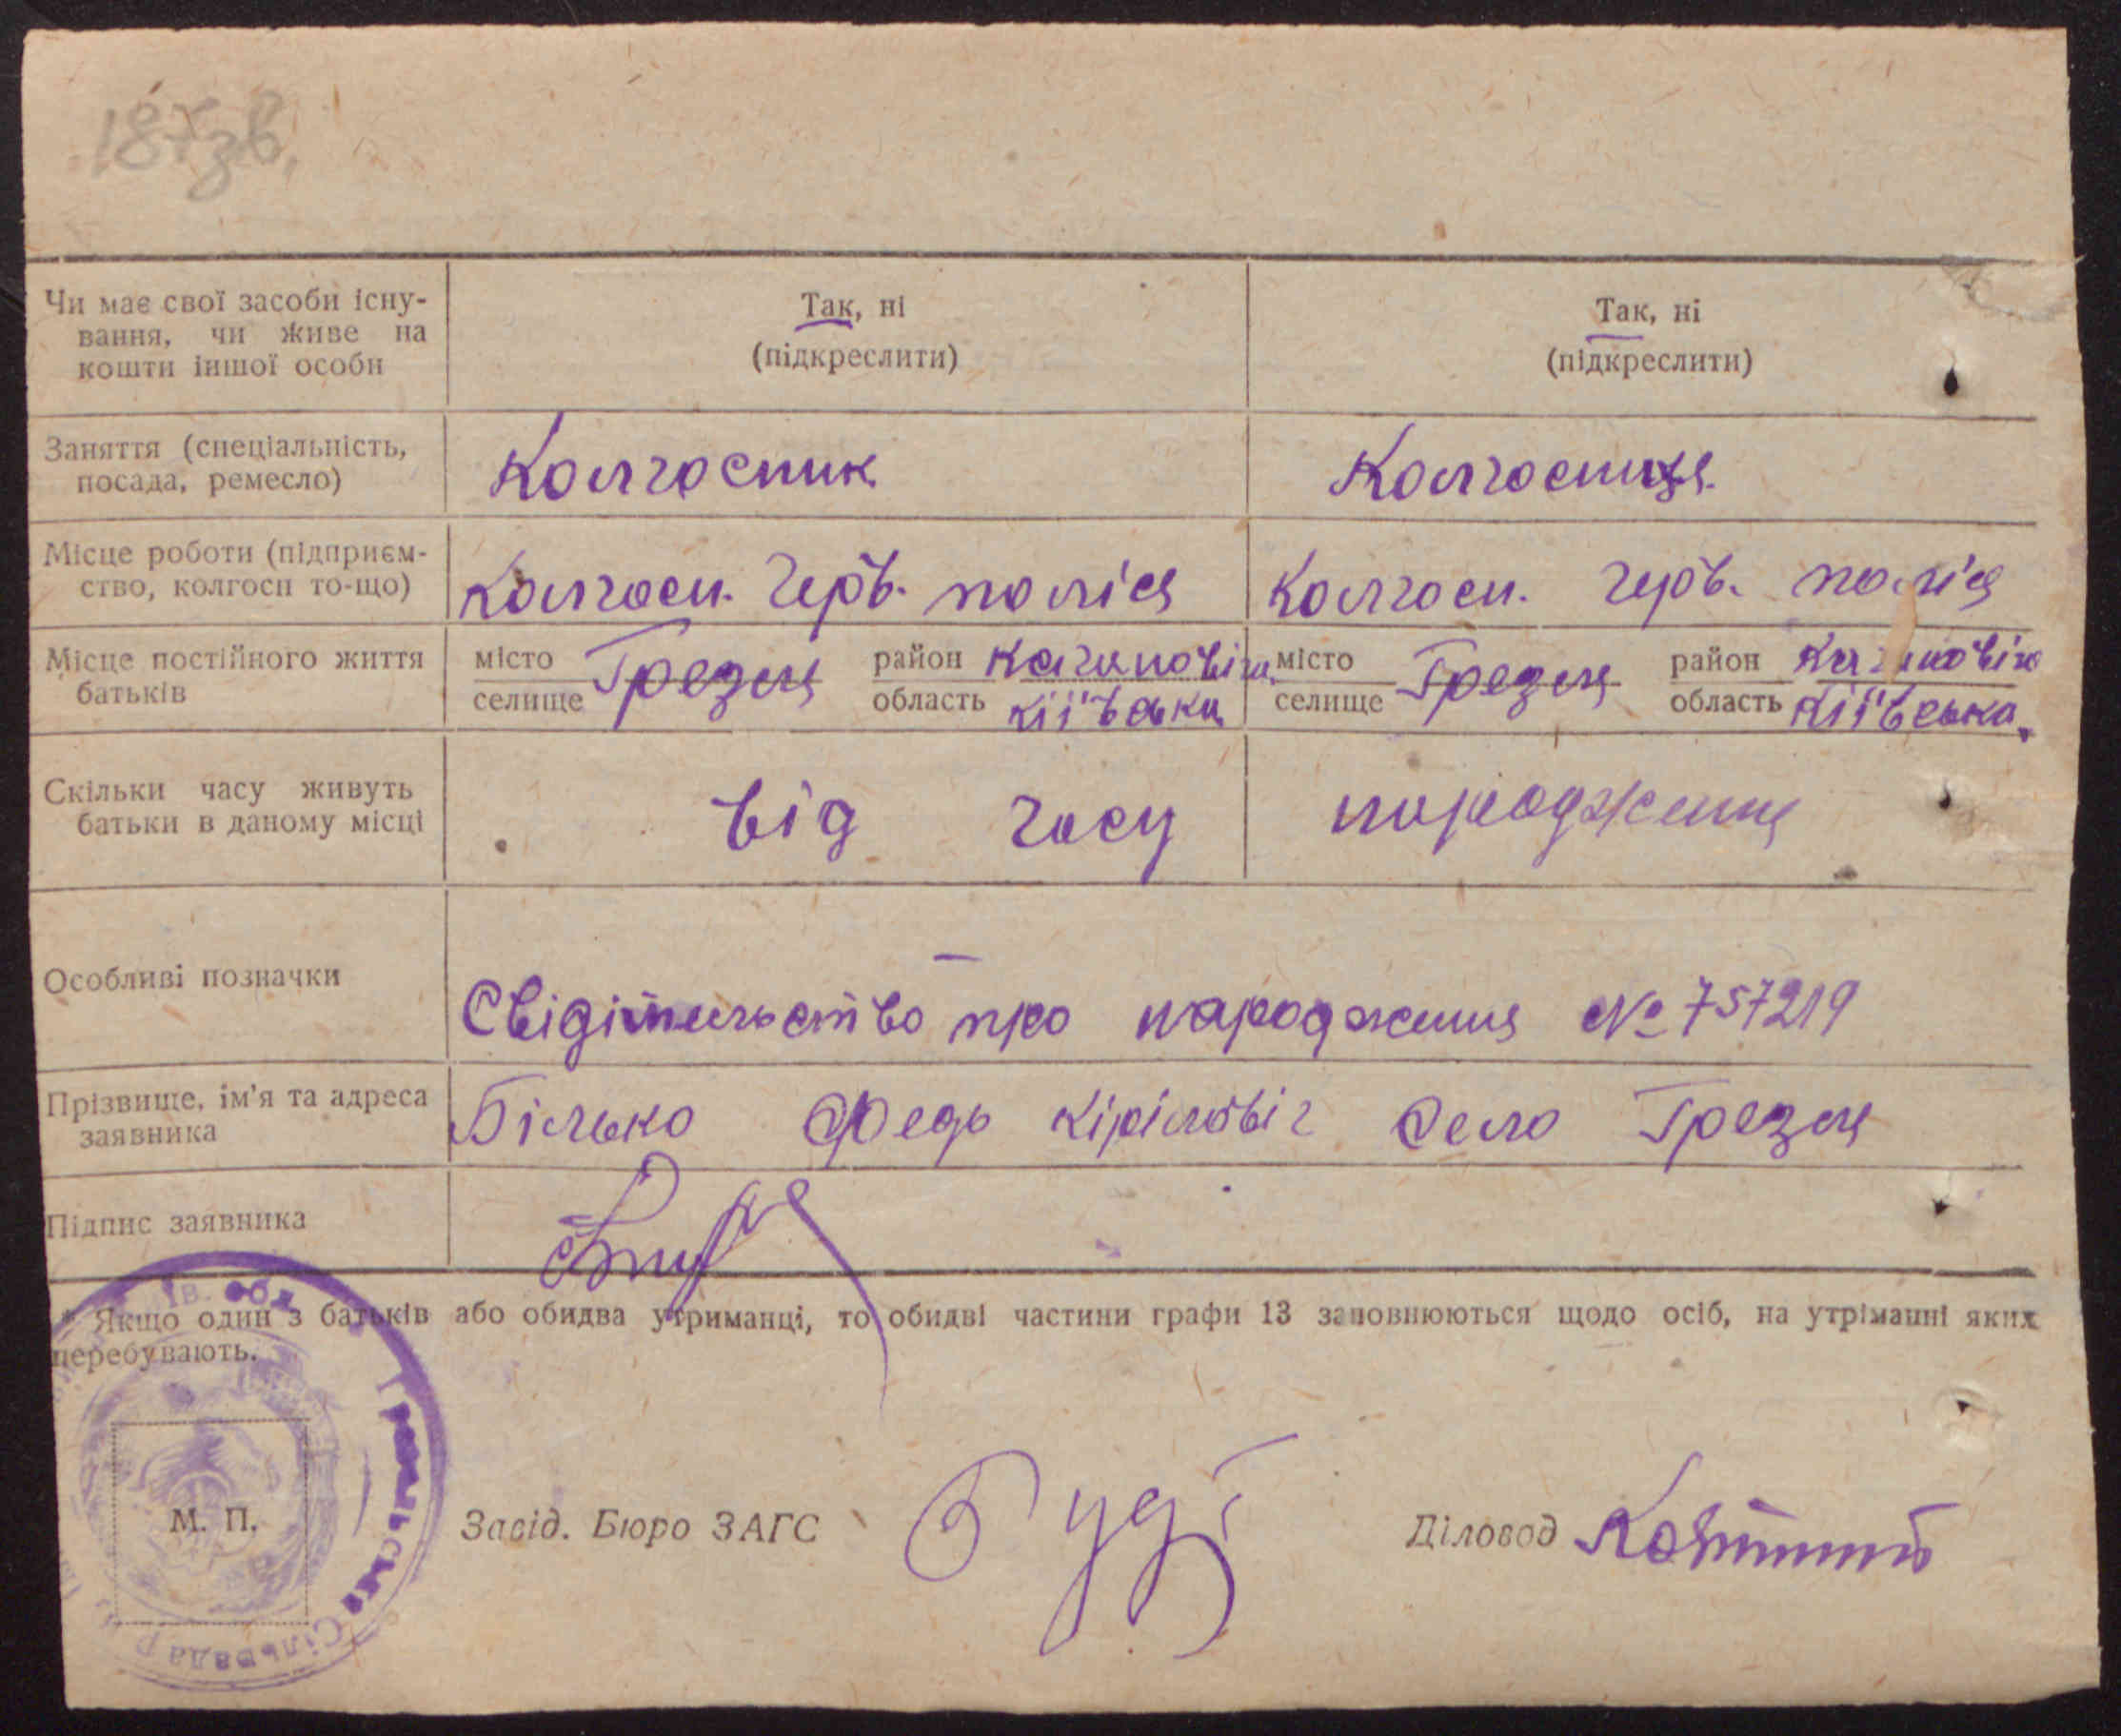 187зв.
Чи має свої засоби існу-
вання, чи живе на
кошти іншої особи
Так, ні
(підкреслити)
Так, ні
(підкреслити)
Заняття (спеціальність,
посада, ремесло)
Колгоспник
Колгоспниця
Місце роботи (підприєм-
ство, колгосп то-що)
Колгосп. Черв. поліся
Колгосп. Черв. поліся
Місце постійного життя
батьків
місто
селище
Грезля
район Кагановічи
область Київська
місто
селище
Грезля
район Кагановіч
область Київська
Скільки часу живуть
батьки в даному місці
Від часу народження
Особливі позначки
Свідітельство про народження № 757219
Прізвище, ім'я та адреса
заявника
Білько Федь Кіріловіч село Грезля
Підпис заявника
* Якщо один з батьків або обидва утриманці, то обидві частини графи 13 заповнюються щодо осіб, на утріманні яких
перебувають.
обл.
Сільрада
М. П.
Завід. Бюро ЗАГС
Діловод